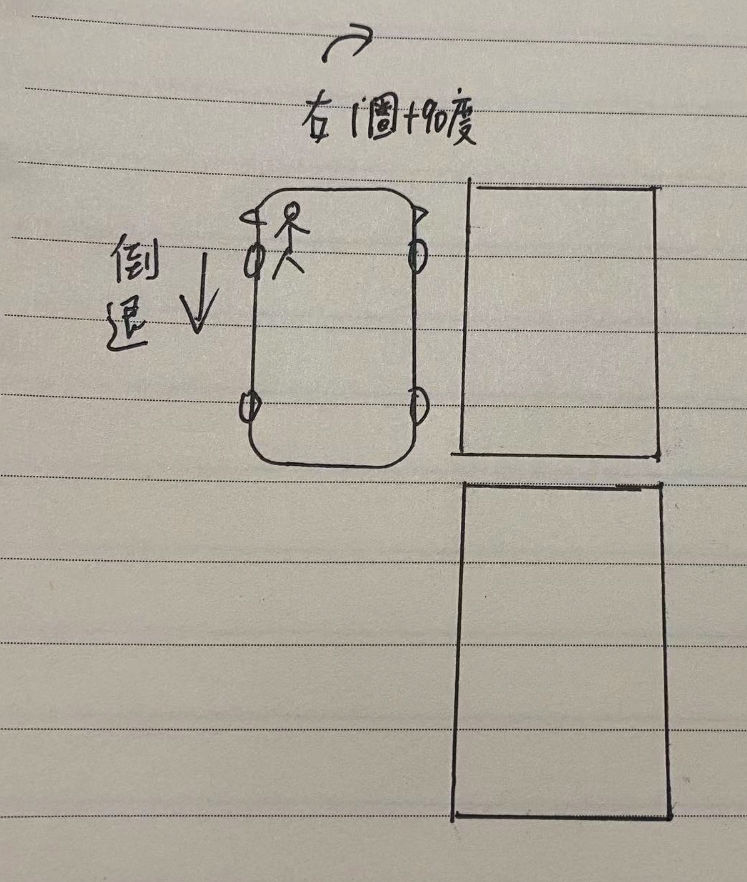 右1圈+90度
倒
退